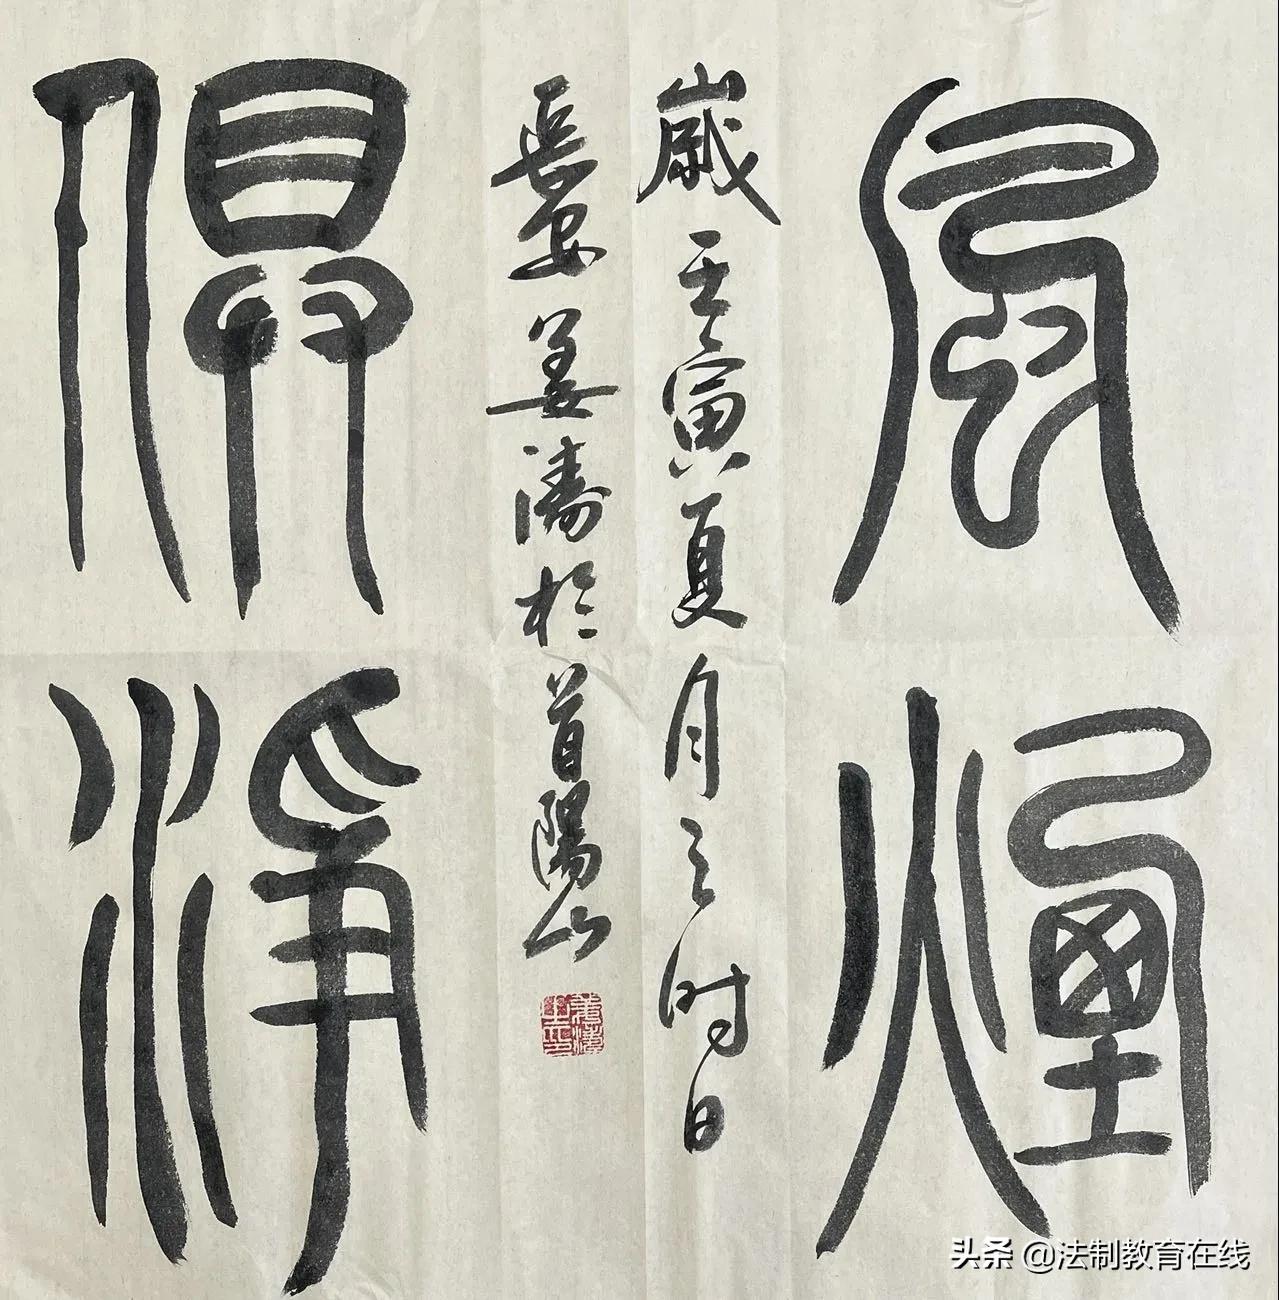 風煙
歲壬寅夏月之时日
長安姜濤於首陽山
俱淨
头条 @法制教育在线